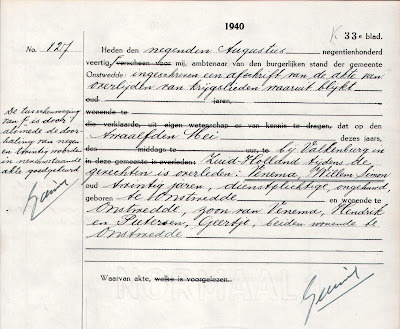 1940
K 33e blad.
No. 127
Heden den negenden Augustus negentienhonderd
veertig, verscheen voor mij, ambtenaar van den burgerlijken stand der gemeente
Onstwedde: ingeschreven een afschrift van de akte van
overlijden van krijgslieden waaruit blijkt
oud jaren,
wonende te
die verklaarde, uit eigen wetenschap er van kennis te dragen, dat op den
twaalfden Mei dezes jaars,
des middags te uur, te bij Valkenburg en
in deze gemeente is overleden: Zuid-Holland tijdens de
gevechten is overleden: Venema, Willem Simon
oud twintig jaren, dienstplichtige, ongehuwd,
geboren te Onstwedde en wonende te
Onstwedde, zoon van Venema, Hendrik
en Pietersen, Geertje, beiden wonende te
Onstwedde
Waarvan akte, welke is voorgelezen.
De tusschenvoeging
van f. is door
alsmede de door-
haling van negen
en twintig woorden
in nevenstaande
akte goedgekeurd